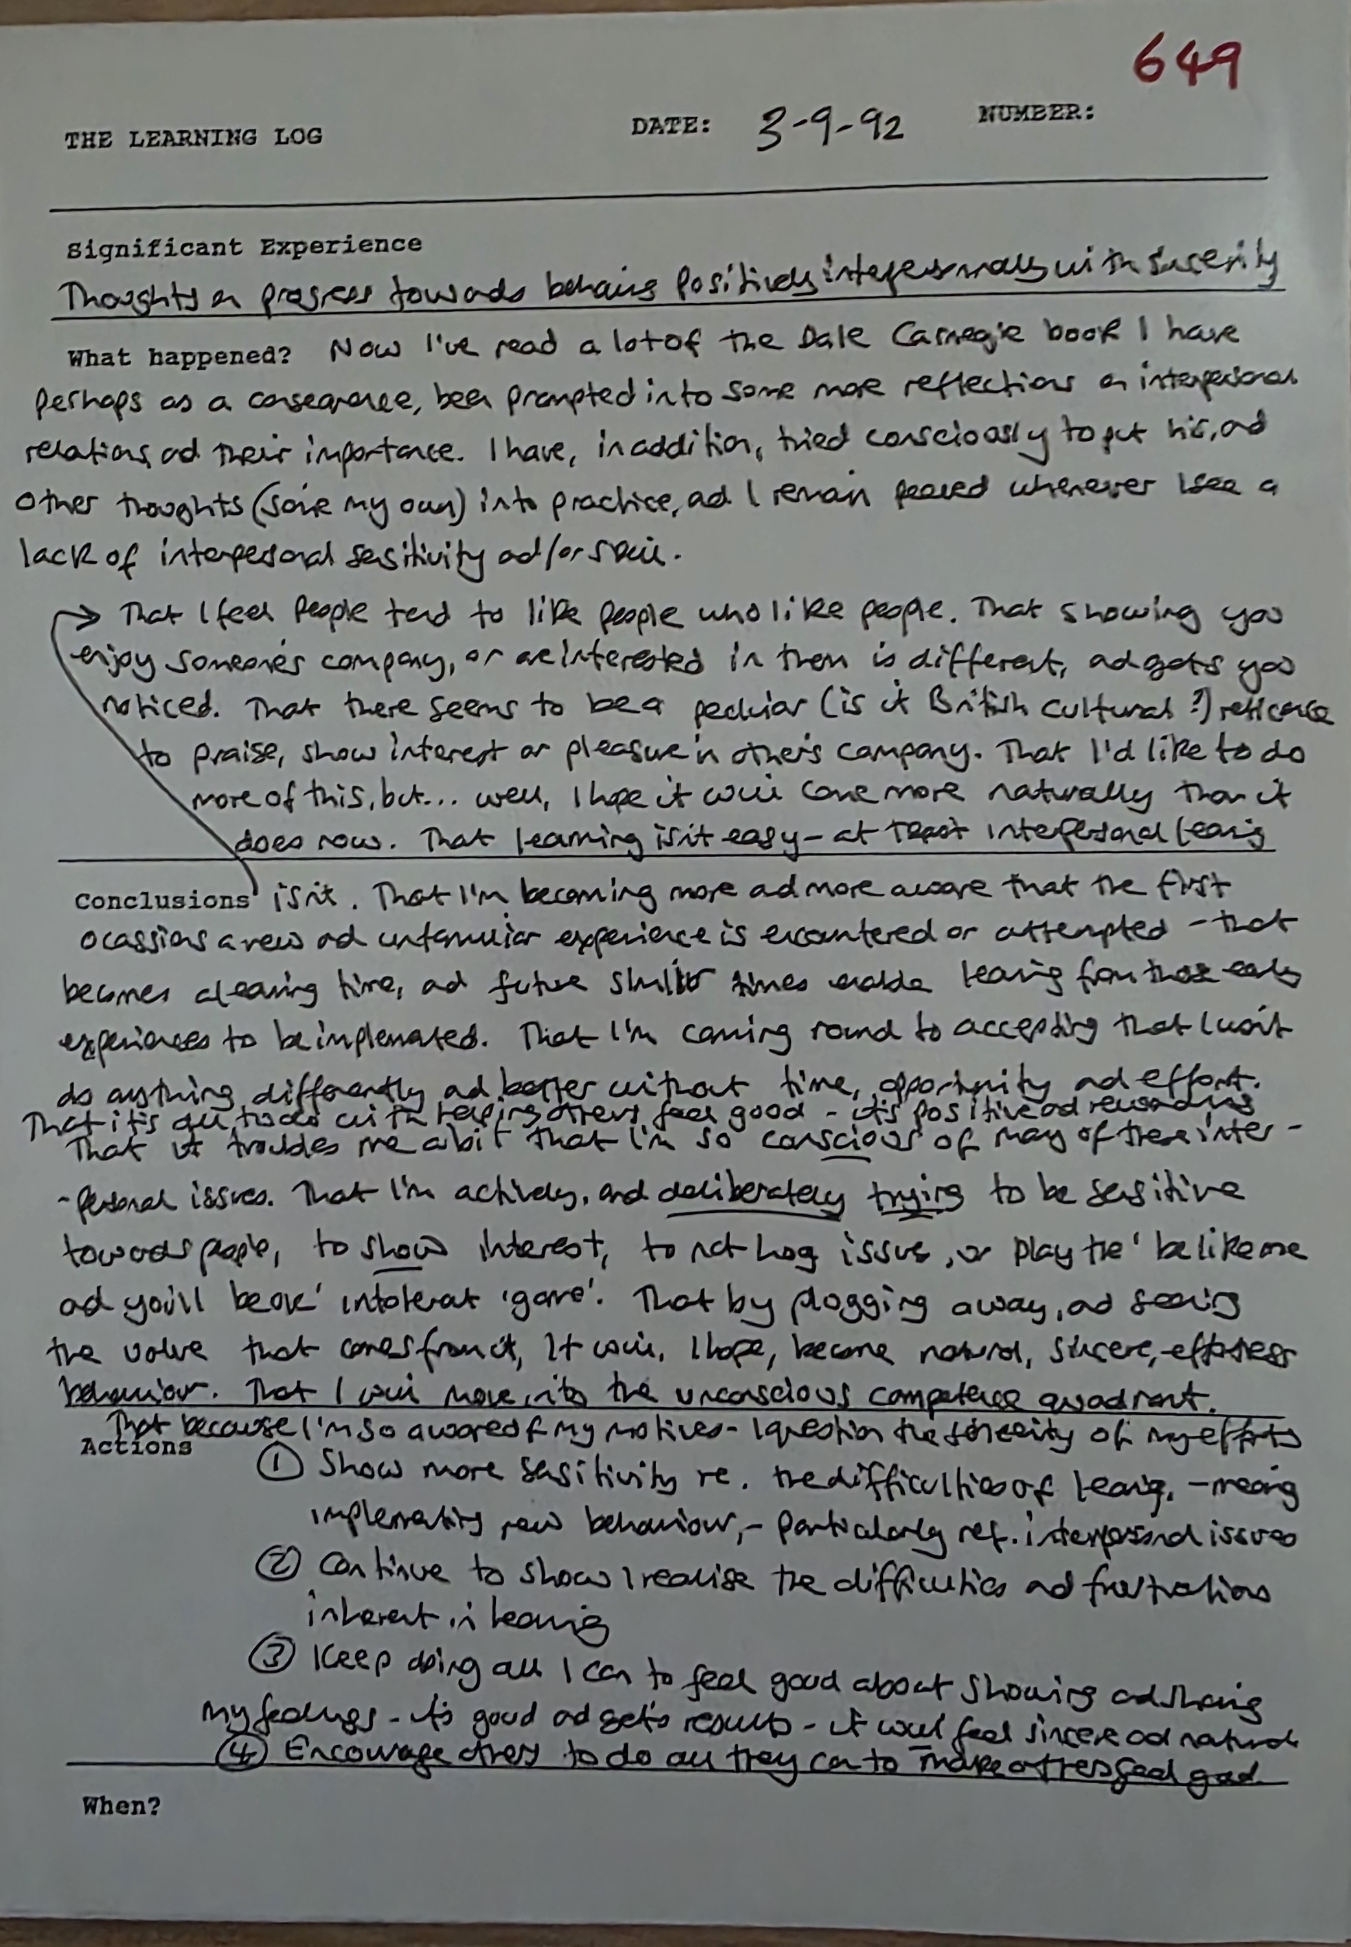 649
THE LEARNING LOG DATE: 3-9-92 NUMBER:
Significant Experience
Thoughts on progress towards behaving positively interpersonally with sincerity
What happened? Now I've read a lot of the Dale Carnegie book I have
perhaps as a consequence, been prompted into some more reflections on interpersonal
relations, and their importance. I have, in addition, tried consciously to put his, and
other thoughts (some my own) into practice, and I remain peeved whenever I see a
lack of interpersonal sensitivity and/or skill.
→ That I feel people tend to like people who like people. That showing you
enjoy someone's company, or are interested in them is different, and gets you
noticed. That there seems to be a peculiar (is it British cultural?) reticence
to praise, show interest or pleasure in other's company. That I'd like to do
more of this, but... well, I hope it will come more naturally than it
does now. That learning isn't easy - at least interpersonal learning
Conclusions isn't. That I'm becoming more and more aware that the first
ocassions a new and unfamiliar experience is encountered or attempted - that
becomes a learning time, and future similar times enable learning from those early
experiences to be implemented. That I'm coming round to accepting that I won't
do anything differently and better without time, opportunity and effort.
That it's all to do with helping others feel good - it's positive and rewarding
That it troubles me a bit that I'm so conscious of many of these inter-
-personal issues. That I'm actively, and deliberately trying to be sensitive
towards people, to show interest, to not hog issues, or play the 'be like me
and you'll be ok' intolerant 'game'. That by plogging away, and seeing
the value that comes from it, it will, I hope, become natural, sincere, effortless
behaviour. That I will move into the unconscious competence quadrant.
That because I'm so aware of my motives - I question the sincerity of my efforts
Actions
① Show more sensitivity re. the difficulties of learning, - meaning
implementing new behaviour, - particularly ref. interpersonal issues
② Continue to show I realise the difficulties and frustrations
inherent in learning
③ Keep doing all I can to feel good about showing and sharing
my feelings - it's good and gets results - it will feel sincere and natural
④ Encourage others to do all they can to make others feel good
When?